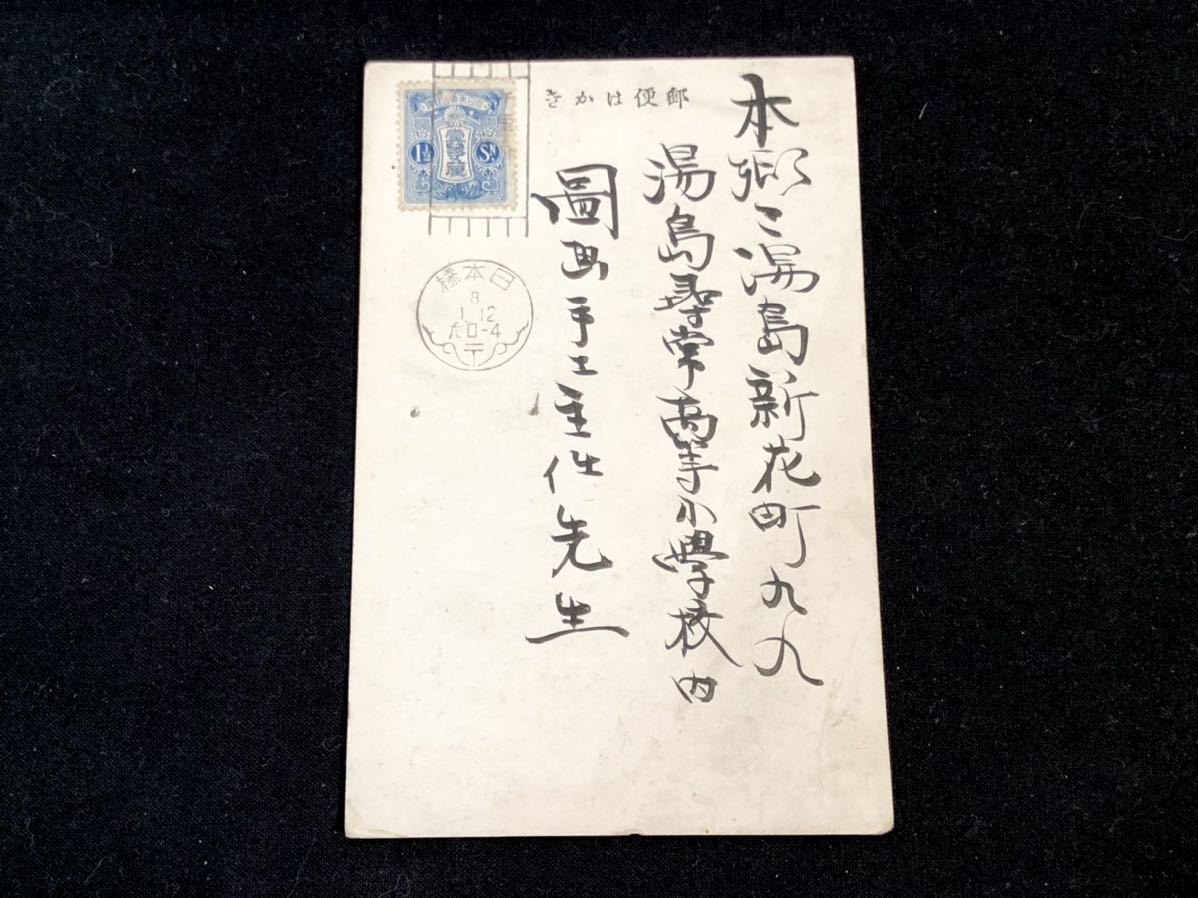 郵便はかき
本郷區湯島新花町九九
湯島尋常高等小學校内
圖畫手工主任先生
1½ Sn
日本橋
8
1.12
后0-4